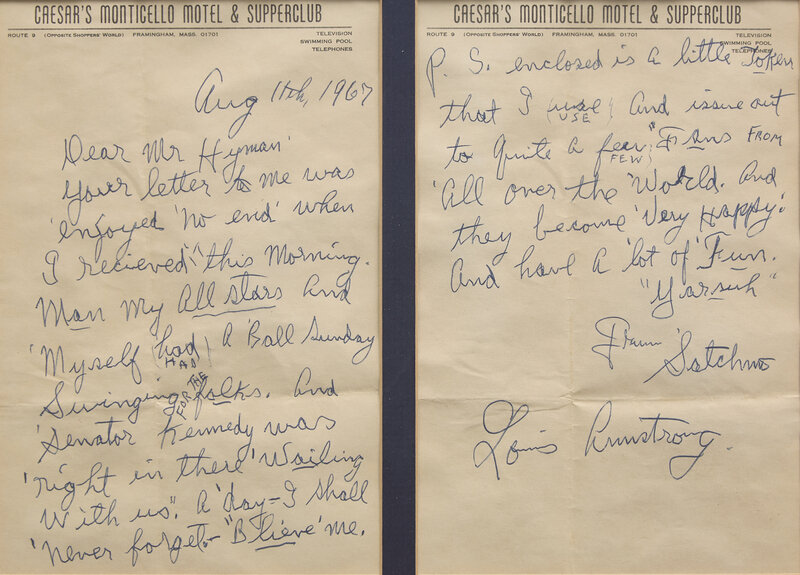 CAESAR'S MONTICELLO MOTEL & SUPPERCLUB
ROUTE 9 (OPPOSITE SHOPPERS' WORLD) FRAMINGHAM, MASS. 01701
TELEVISION
SWIMMING POOL
TELEPHONES
Aug 11th, 1967
Dear Mr Hyman'
Your letter to me was
'enjoyed 'no end' when
I recieved" this Morning.
Man my All stars And
'Myself (had) A 'Ball Sunday
HAD
Swinging FOR THE folks. And
'Senator Kennedy was
'right in there' Wailing
With us". A 'day–I shall
'never forget–"B'lieve' me.
CAESAR'S MONTICELLO MOTEL & SUPPERCLUB
ROUTE 9 (OPPOSITE SHOPPERS' WORLD) FRAMINGHAM, MASS. 01701
TELEVISION
SWIMMING POOL
TELEPHONES
P. S. enclosed is a little Token
that I (use) And issue out
USE
to Quite a few "Fans FROM
FEW
'All over the 'World. And
they become 'Very Happy'
And have A 'lot of 'Fun.
"Yarsuh"
From 'Satchmo
Louis Armstrong.